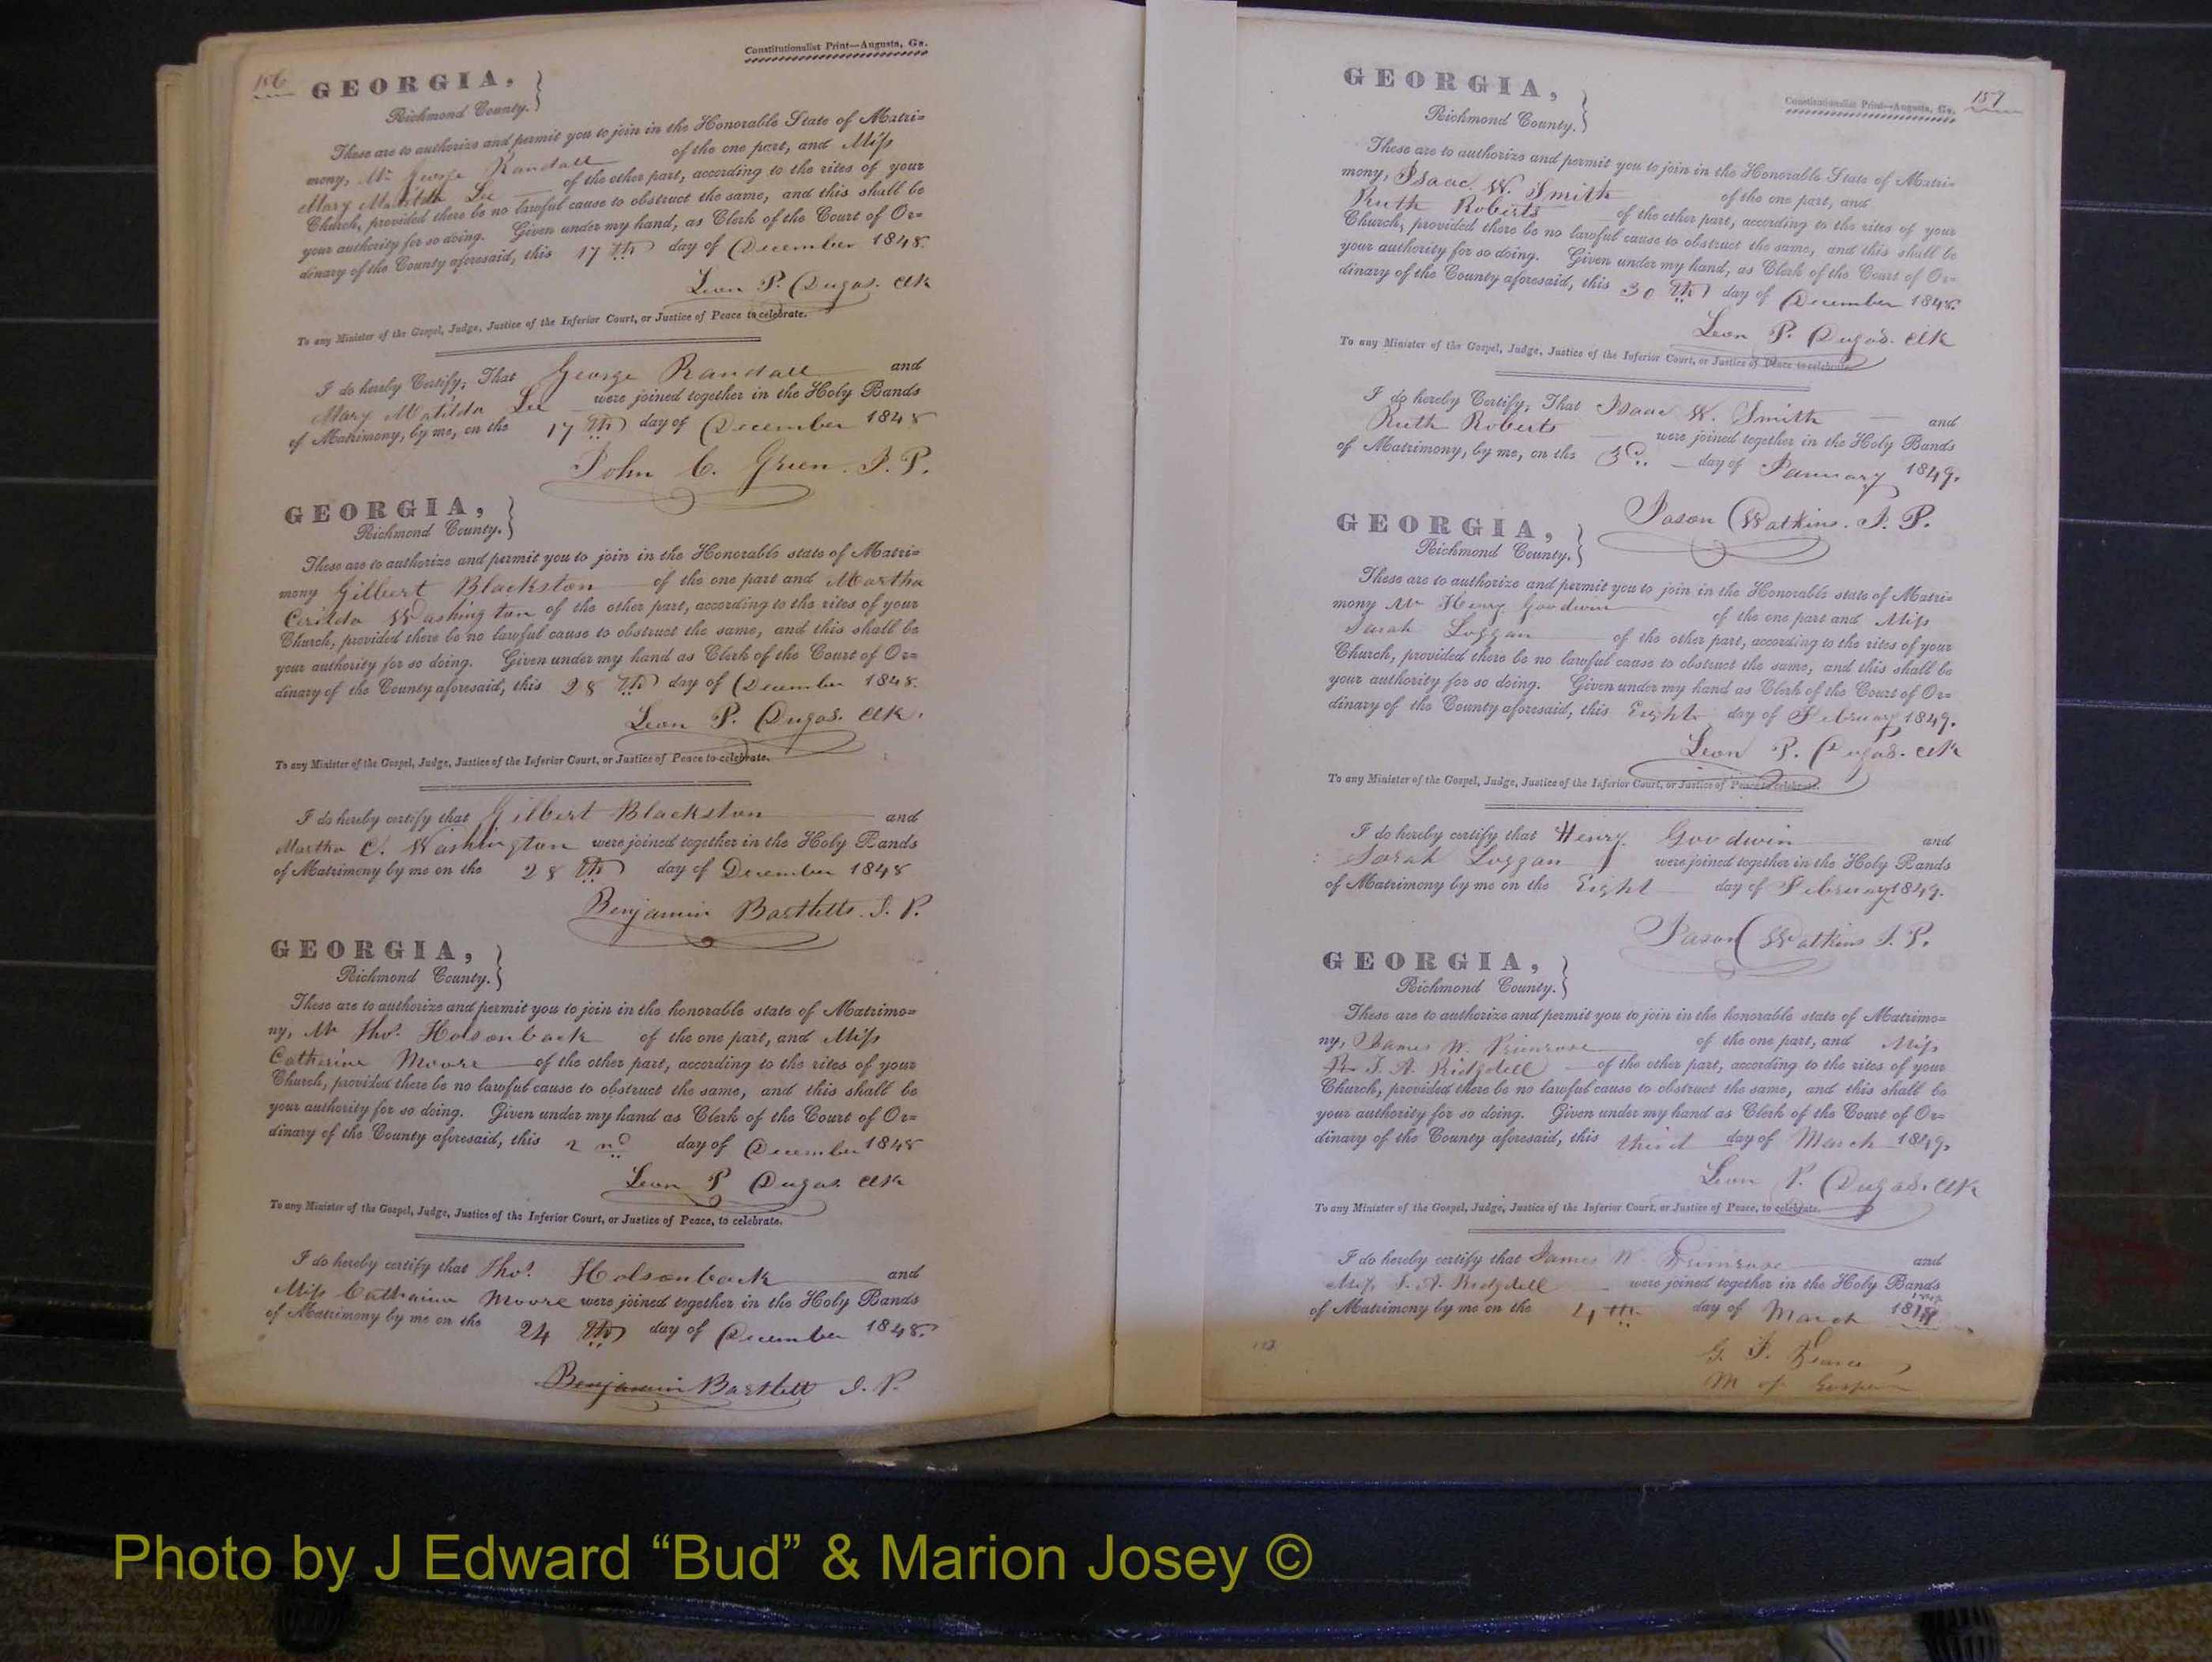 156
Constitutionalist Print—Augusta, Ga.
GEORGIA,
Richmond County.
These are to authorize and permit you to join in the Honorable State of Matri=
mony, Mr George Randall of the one part, and Miss
Mary Matilda Lee of the other part, according to the rites of your
Church, provided there be no lawful cause to obstruct the same, and this shall be
your authority for so doing. Given under my hand, as Clerk of the Court of Or=
dinary of the County aforesaid, this 17th day of December 1848.
Leon P. Dugas. Clk
To any Minister of the Gospel, Judge, Justice of the Inferior Court, or Justice of Peace to celebrate.
I do hereby Certify, That George Randall and
Mary Matilda Lee were joined together in the Holy Bands
of Matrimony, by me, on the 17th day of December 1848
John C. Green. J. P.
GEORGIA,
Richmond County.
These are to authorize and permit you to join in the Honorable state of Matri=
mony Gilbert Blackston of the one part and Martha
Cerilda Washington of the other part, according to the rites of your
Church, provided there be no lawful cause to obstruct the same, and this shall be
your authority for so doing. Given under my hand as Clerk of the Court of Or=
dinary of the County aforesaid, this 28th day of December 1848.
Leon P. Dugas. Clk.
To any Minister of the Gospel, Judge, Justice of the Inferior Court, or Justice of Peace to celebrate.
I do hereby certify that Gilbert Blackston and
Martha C. Washington were joined together in the Holy Bands
of Matrimony by me on the 28th day of December 1848
Benjamin Bartletts. J. P.
GEORGIA,
Richmond County.
These are to authorize and permit you to join in the honorable state of Matrimo=
ny, Mr Thos. Holsonback of the one part, and Miss
Catherine Moore of the other part, according to the rites of your
Church, provided there be no lawful cause to obstruct the same, and this shall be
your authority for so doing. Given under my hand as Clerk of the Court of Or=
dinary of the County aforesaid, this 2nd day of December 1848
Leon P Dugas. Clk
To any Minister of the Gospel, Judge, Justice of the Inferior Court, or Justice of Peace, to celebrate.
I do hereby certify that Thos. Holsonback and
Miss Catharine Moore were joined together in the Holy Bands
of Matrimony by me on the 24th day of December 1848.
Benjamin Bartlett J. P.
157
Constitutionalist Print—Augusta, Ga.
GEORGIA,
Richmond County.
These are to authorize and permit you to join in the Honorable State of Matri=
mony, Isaac W. Smith of the one part, and
Ruth Roberts of the other part, according to the rites of your
Church, provided there be no lawful cause to obstruct the same, and this shall be
your authority for so doing. Given under my hand, as Clerk of the Court of Or=
dinary of the County aforesaid, this 30th day of December 1848.
Leon P. Dugas. Clk
To any Minister of the Gospel, Judge, Justice of the Inferior Court, or Justice of Peace to celebrate.
I do hereby Certify, That Isaac W. Smith and
Ruth Roberts were joined together in the Holy Bands
of Matrimony, by me, on the 3d. day of January 1849.
Jason Watkins. J. P.
GEORGIA,
Richmond County.
These are to authorize and permit you to join in the Honorable state of Matri=
mony Mr Henry Goodwin of the one part and Miss
Sarah Loggan of the other part, according to the rites of your
Church, provided there be no lawful cause to obstruct the same, and this shall be
your authority for so doing. Given under my hand as Clerk of the Court of Or=
dinary of the County aforesaid, this Eight day of February 1849.
Leon P. Dugas. Clk
To any Minister of the Gospel, Judge, Justice of the Inferior Court, or Justice of Peace to celebrate.
I do hereby certify that Henry Goodwin and
Sarah Loggan were joined together in the Holy Bands
of Matrimony by me on the Eight day of February 1849.
Jason Watkins J. P.
GEORGIA,
Richmond County.
These are to authorize and permit you to join in the honorable state of Matrimo=
ny, James W. Primrose of the one part, and Miss
J. A. Ridgdell of the other part, according to the rites of your
Church, provided there be no lawful cause to obstruct the same, and this shall be
your authority for so doing. Given under my hand as Clerk of the Court of Or=
dinary of the County aforesaid, this third day of March 1849.
Leon P. Dugas. Clk
To any Minister of the Gospel, Judge, Justice of the Inferior Court, or Justice of Peace, to celebrate.
I do hereby certify that James W. Primrose and
Miss J. A. Ridgdell were joined together in the Holy Bands
of Matrimony by me on the 4th day of March 1849
G. F. Pearce
M of Gospel
Photo by J Edward “Bud” & Marion Josey ©